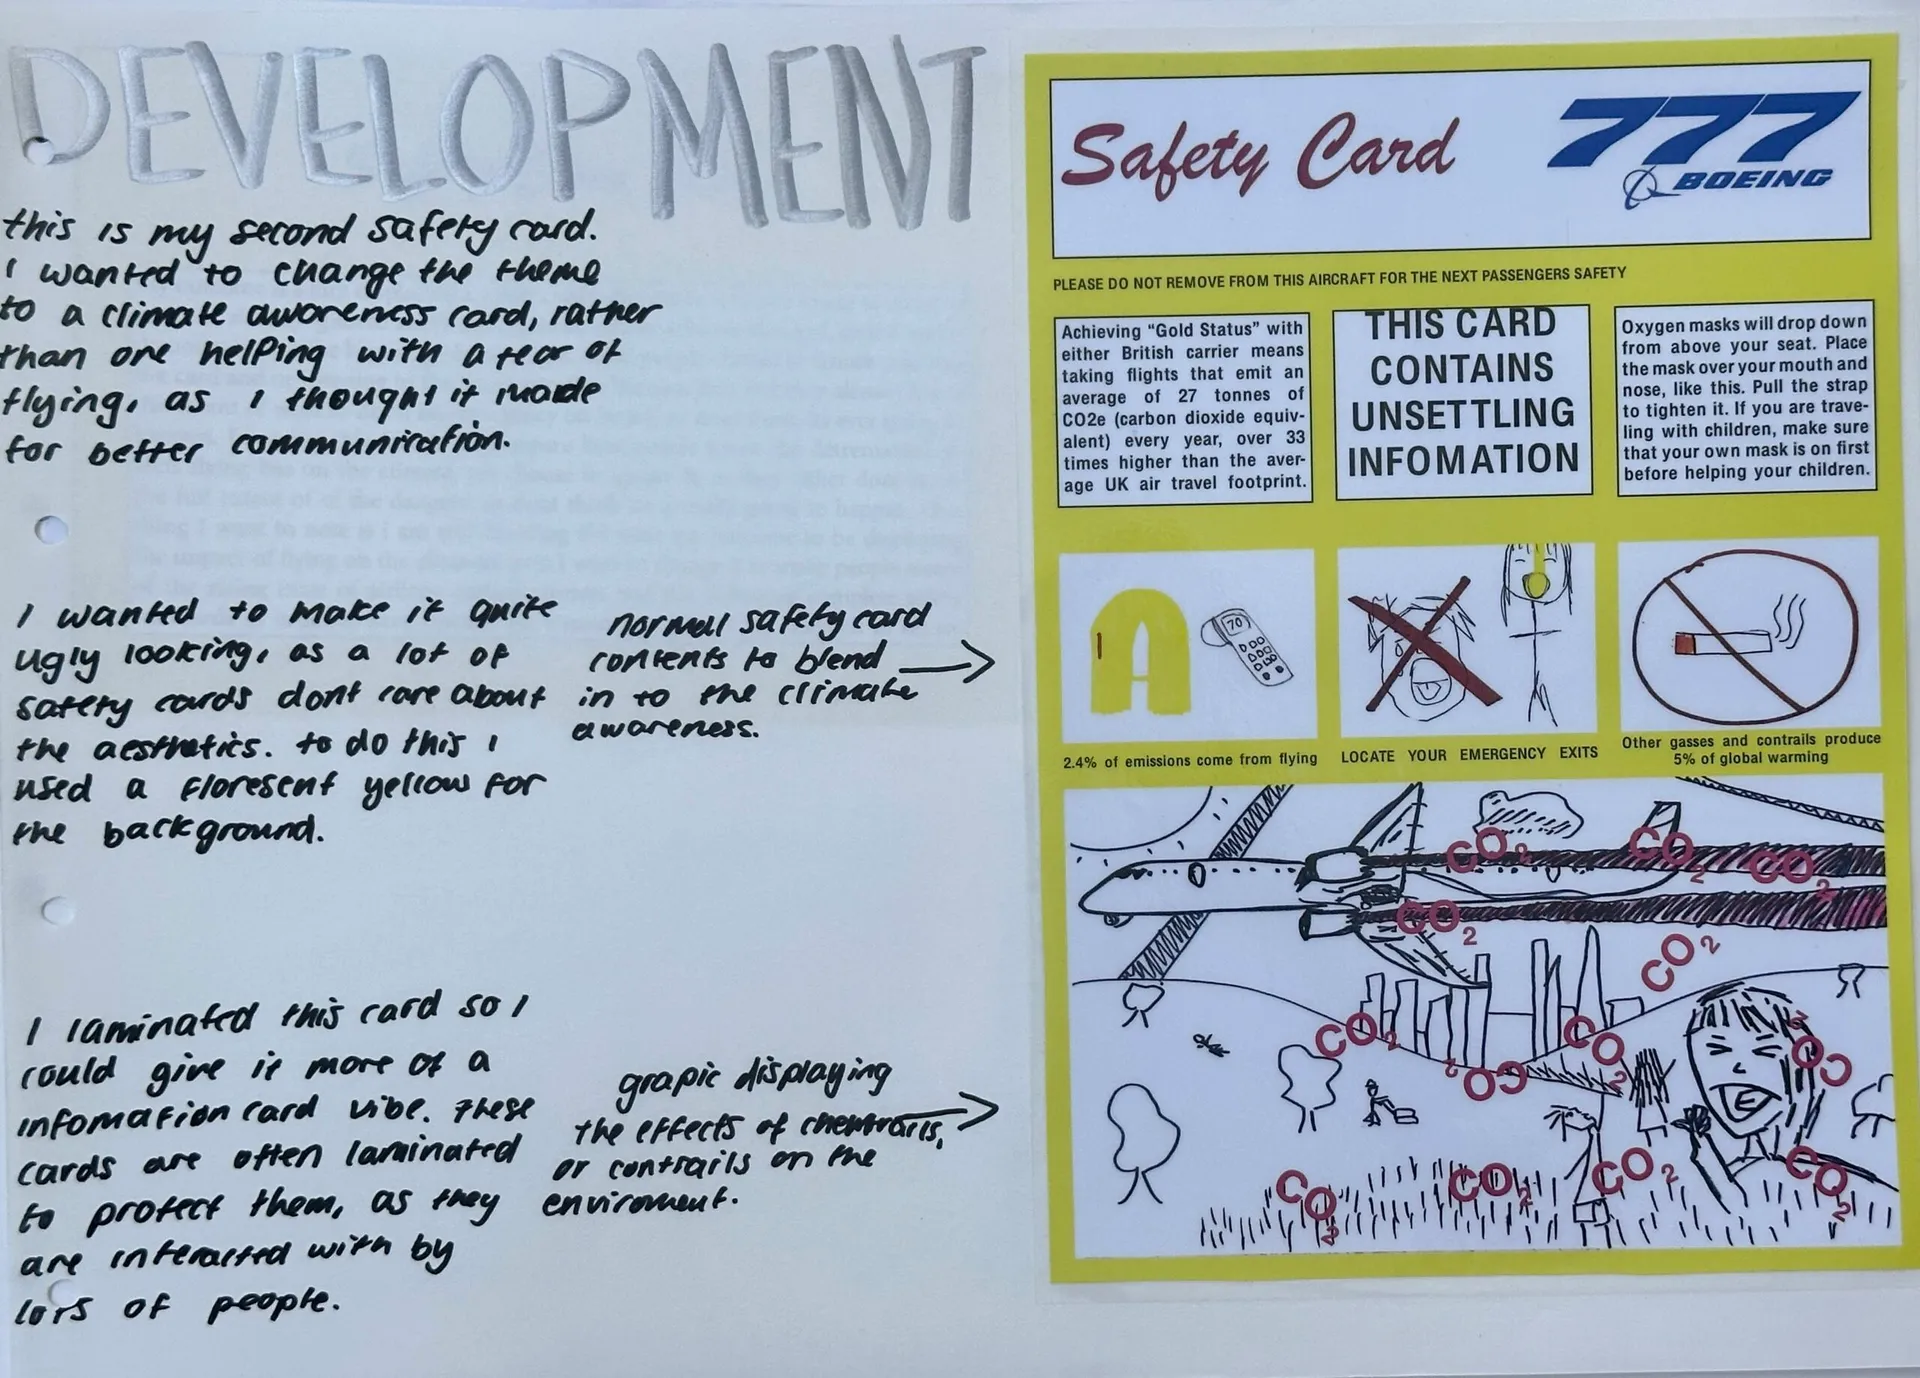 DEVELOPMENT
this is my second safety card.
I wanted to change the theme
to a climate awareness card, rather
than one helping with a fear of
flying, as I thought it made
for better communication.
I wanted to make it quite
ugly looking, as a lot of
safety cards dont care about
the aesthetics. to do this I
used a floresent yellow for
the background.
normal safety card
contents to blend
in to the climate
awareness.
I laminated this card so I
could give it more of a
infomation card vibe. These
cards are often laminated
to protect them, as they
are interacted with by
lots of people.
grapic displaying
the effects of chemtrails,
or contrails on the
enviroment.
Safety Card
777
BOEING
PLEASE DO NOT REMOVE FROM THIS AIRCRAFT FOR THE NEXT PASSENGERS SAFETY
Achieving "Gold Status" with
either British carrier means
taking flights that emit an
average of 27 tonnes of
CO2e (carbon dioxide equiv-
alent) every year, over 33
times higher than the aver-
age UK air travel footprint.
THIS CARD
CONTAINS
UNSETTLING
INFOMATION
Oxygen masks will drop down
from above your seat. Place
the mask over your mouth and
nose, like this. Pull the strap
to tighten it. If you are trave-
ling with children, make sure
that your own mask is on first
before helping your children.
70
2.4% of emissions come from flying
LOCATE YOUR EMERGENCY EXITS
Other gasses and contrails produce
5% of global warming
CO2
CO2
CO2
CO2
CO2
CO2
CO2
CO2
CO2
CO2
CO2
CO2
CO2